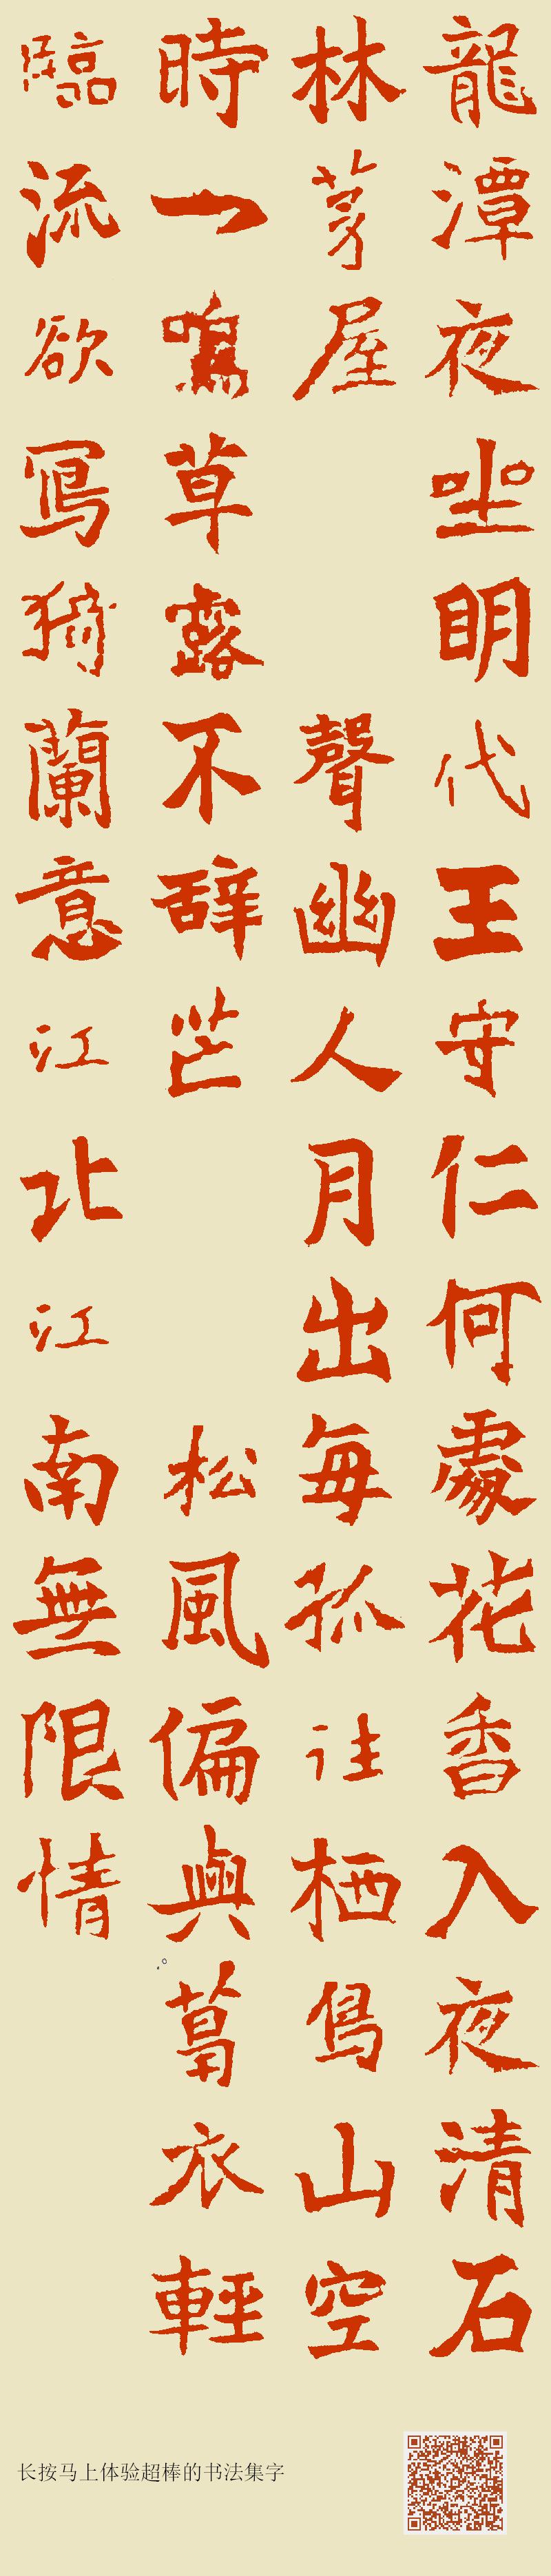 龍潭夜坐明代王守仁何處花香入夜清石
林茅屋 聲幽人月出每孤往栖鳥山空
時一鳴草露不辞芒 松風偏與葛衣輕
臨流欲寫猗蘭意江北江南無限情
长按马上体验超棒的书法集字